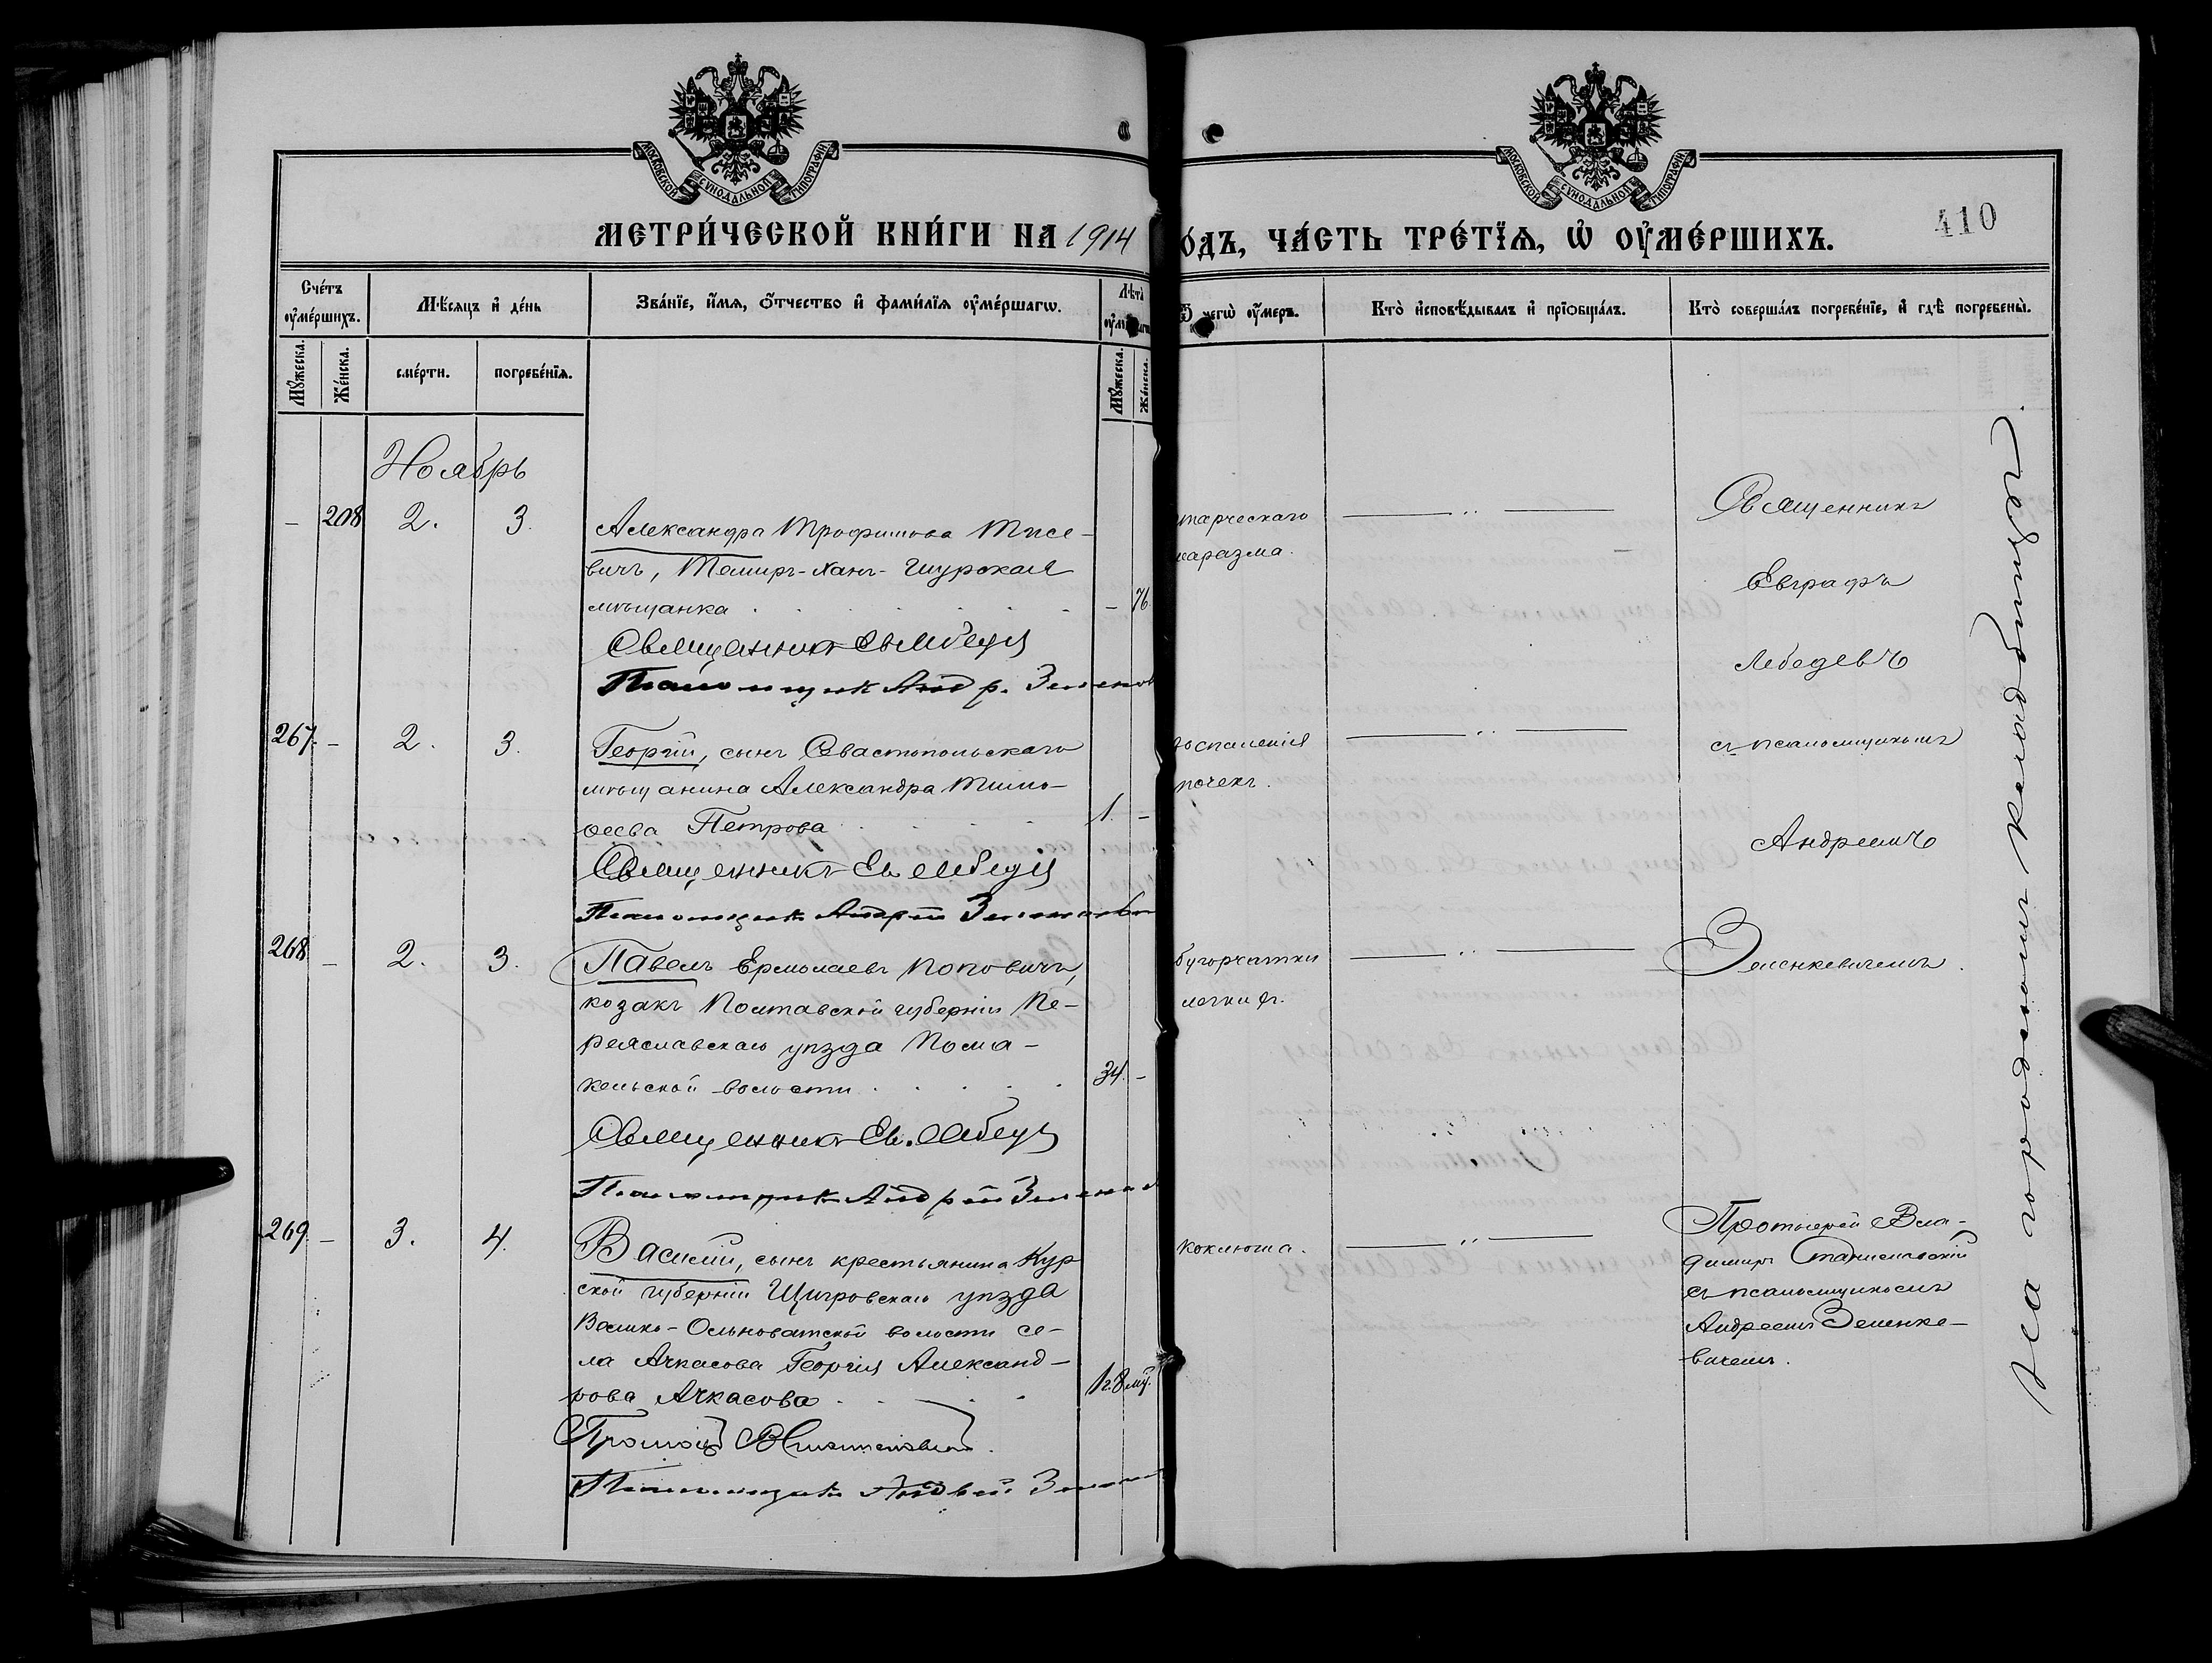 МОСКОВСКОЙ СѴНОДАЛЬНОЙ ТИПОГРАФІИ
МОСКОВСКОЙ СѴНОДАЛЬНОЙ ТИПОГРАФІИ
МЕТРИ́ЧЕСКОЙ КНИ́ГИ НА 1914
ОДЪ, ЧА́СТЬ ТРЕ́ТЇѦ, Ѡ ОУ҆МЕ́РШИХЪ.
410
Сче́тъ оу҆ме́ршихъ.
Мѣ́сяцъ и҆ де́нь
Зва́нїе, и҆́мя, ѻ҆́тчество и҆ фами́лїя оу҆ме́ршагѡ.
Лѣта̀
Ѿ чегѡ̀ оу҆́меръ.
Кто̀ и҆сповѣ́дывалъ и҆ прїѡбща́лъ.
Кто̀ соверша́лъ погребе́нїе, и҆ гдѣ̀ погребены̀.
Мꙋ́жеска.
Же́нска.
сме́рти.
погребе́нїѧ.
Мꙋ́жеска.
Же́нска.
Ноябрь
- 208 2. 3.
Александра Трофимова Мисе-
вичъ, Темиръ-Ханъ-Шурская
мѣщанка - 76
Священникъ Ев. Лебедев
Псаломщик Андр. Зеленкев
тарческаго
маразма.
Священникъ
Евграфъ
Лебедевъ
съ псаломщикомъ
Андреемъ
Зеленкевичемъ.
267. - 2. 3.
Георгій, сынъ Севастопольскаго
мѣщанина Александра Тимо-
ѳеева Петрова 1. -
Священникъ Ев. Лебедев
Псаломщик Андрей Зеленкев
воспаленія
почекъ.
268 - 2. 3.
Павелъ Ермолаевъ Поповичъ,
козакъ Полтавской губерніи Пе-
реяславскаго уѣзда Пома-
кельской волости 34. -
Священникъ Ев. Лебедев
Псаломщик Андрей Зеленкев
бугорчатки
легкихъ.
269. - 3. 4.
Василій, сынъ крестьянина Кур
ской губерніи Щигровскаго уѣзда
Велико-Ольховатской волости се-
ла Ачкасова Георгія Александ-
рова Ачкасова 1 г. 8 мц.
Псаломщик Андрей Зелен
коклюша.
Протоіерей Вла-
диміръ Станиславскій
съ псаломщикомъ
Андреемъ Зеленке-
вичемъ.
На городскомъ кладбищѣ.